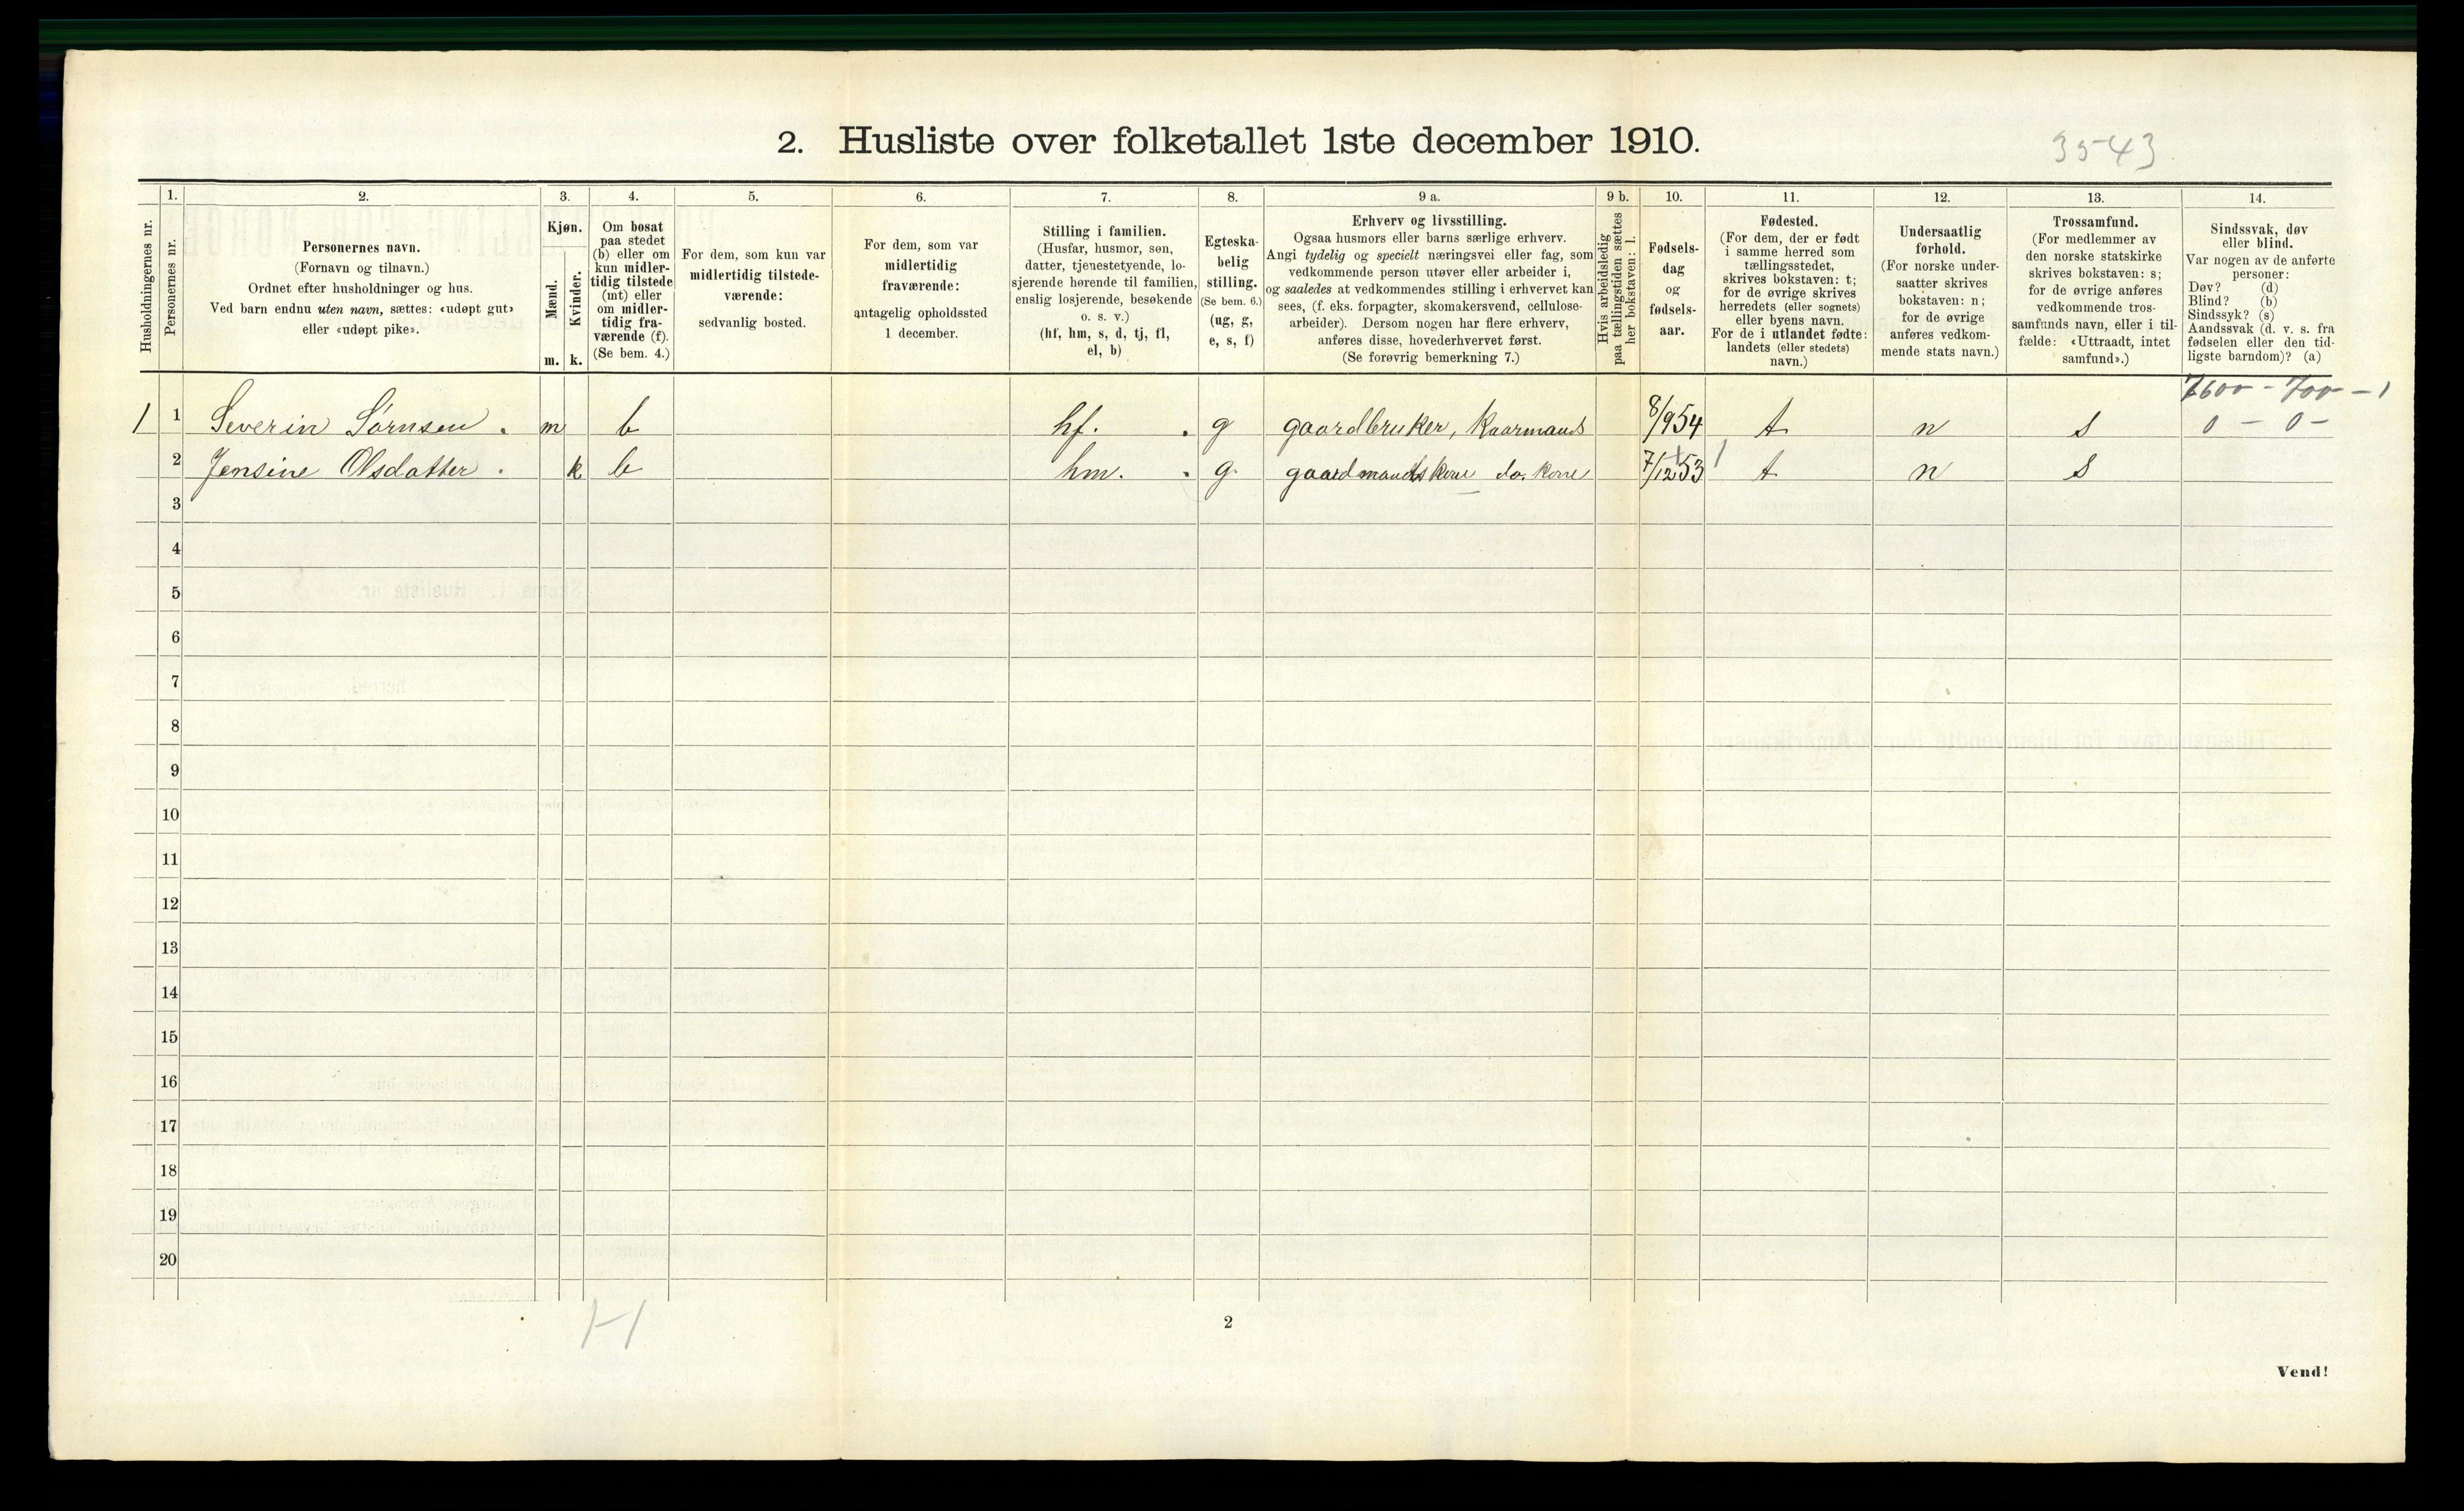 2. Husliste over folketallet 1ste december 1910.
3543
Husholdningernes nr.
1.
Personernes nr.
2.
Personernes navn.
(Fornavn og tilnavn.)
Ordnet efter husholdninger og hus.
Ved barn endnu uten navn, sættes: «udøpt gut»
eller «udøpt pike».
3.
Kjøn.
Mænd.
m.
Kvinder.
k.
4.
Om bosat
paa stedet
(b) eller om
kun midler-
tidig tilstede
(mt) eller
om midler-
tidig fra-
værende (f).
(Se bem. 4.)
5.
For dem, som kun var
midlertidig tilstede-
værende:
sedvanlig bosted.
6.
For dem, som var
midlertidig
fraværende:
antagelig opholdssted
1 december.
7.
Stilling i familien.
(Husfar, husmor, søn,
datter, tjenestetyende, lo-
sjerende hørende til familien,
enslig losjerende, besøkende
o. s. v.)
(hf, hm, s, d, tj, fl,
el, b)
8.
Egteska-
belig
stilling.
(Se bem. 6.)
(ug, g,
e, s, f)
9 a.
Erhverv og livsstilling.
Ogsaa husmors eller barns særlige erhverv.
Angi tydelig og specielt næringsvei eller fag, som
vedkommende person utøver eller arbeider i,
og saaledes at vedkommendes stilling i erhvervet kan
sees, (f. eks. forpagter, skomakersvend, cellulose-
arbeider). Dersom nogen har flere erhverv,
anføres disse, hovederhvervet først.
(Se forøvrig bemerkning 7.)
9 b.
Hvis arbeidsledig
paa tællingstiden sættes
her bokstaven: l.
10.
Fødsels-
dag
og
fødsels-
aar.
11.
Fødested.
(For dem, der er født
i samme herred som
tællingsstedet,
skrives bokstaven: t;
for de øvrige skrives
herredets (eller sognets)
eller byens navn.
For de i utlandet fødte:
landets (eller stedets)
navn.)
12.
Undersaatlig
forhold.
(For norske under-
saatter skrives
bokstaven: n;
for de øvrige
anføres vedkom-
mende stats navn.)
13.
Trossamfund.
(For medlemmer av
den norske statskirke
skrives bokstaven: s;
for de øvrige anføres
vedkommende tros-
samfunds navn, eller i til-
fælde: «Uttraadt, intet
samfund».)
14.
Sindssvak, døv
eller blind.
Var nogen av de anførte
personer:
Døv? (d)
Blind? (b)
Sindssyk? (s)
Aandssvak (d. v. s. fra
fødselen eller den tid-
ligste barndom)? (a)
7600 - 700 - 1
1 1 Severin Sørnsen. m b hf. g gaardbruker, Kaarmands 8/9 54 t n s 0 - 0 -
2 Jensine Olsdatter. k b hm. g. gaardmands kone do. kone 7/12 53 t n s
3
4
5
6
7
8
9
10
11
12
13
14
15
16
17
18
19
20
2
Vend!